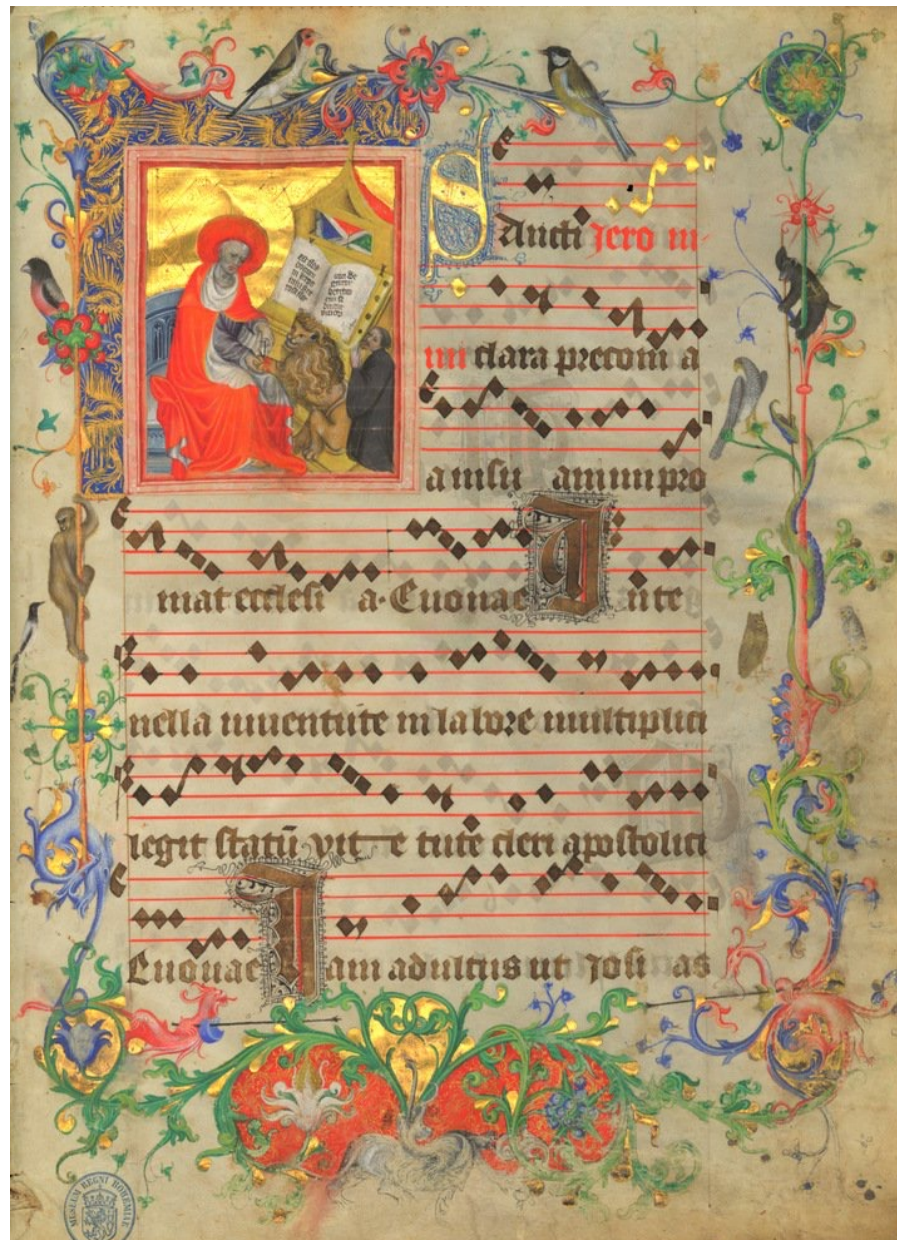 Sancti Jero ni
mi clara preconi a
a nisu animi pro
mat ecclesi a. Euouae A nite
nella iuuentute in labore multiplici
legit statū vit e tute cleri apostolici
Euouae I am adultus ut Josi as
MUSEUM REGNI BOHEMIAE